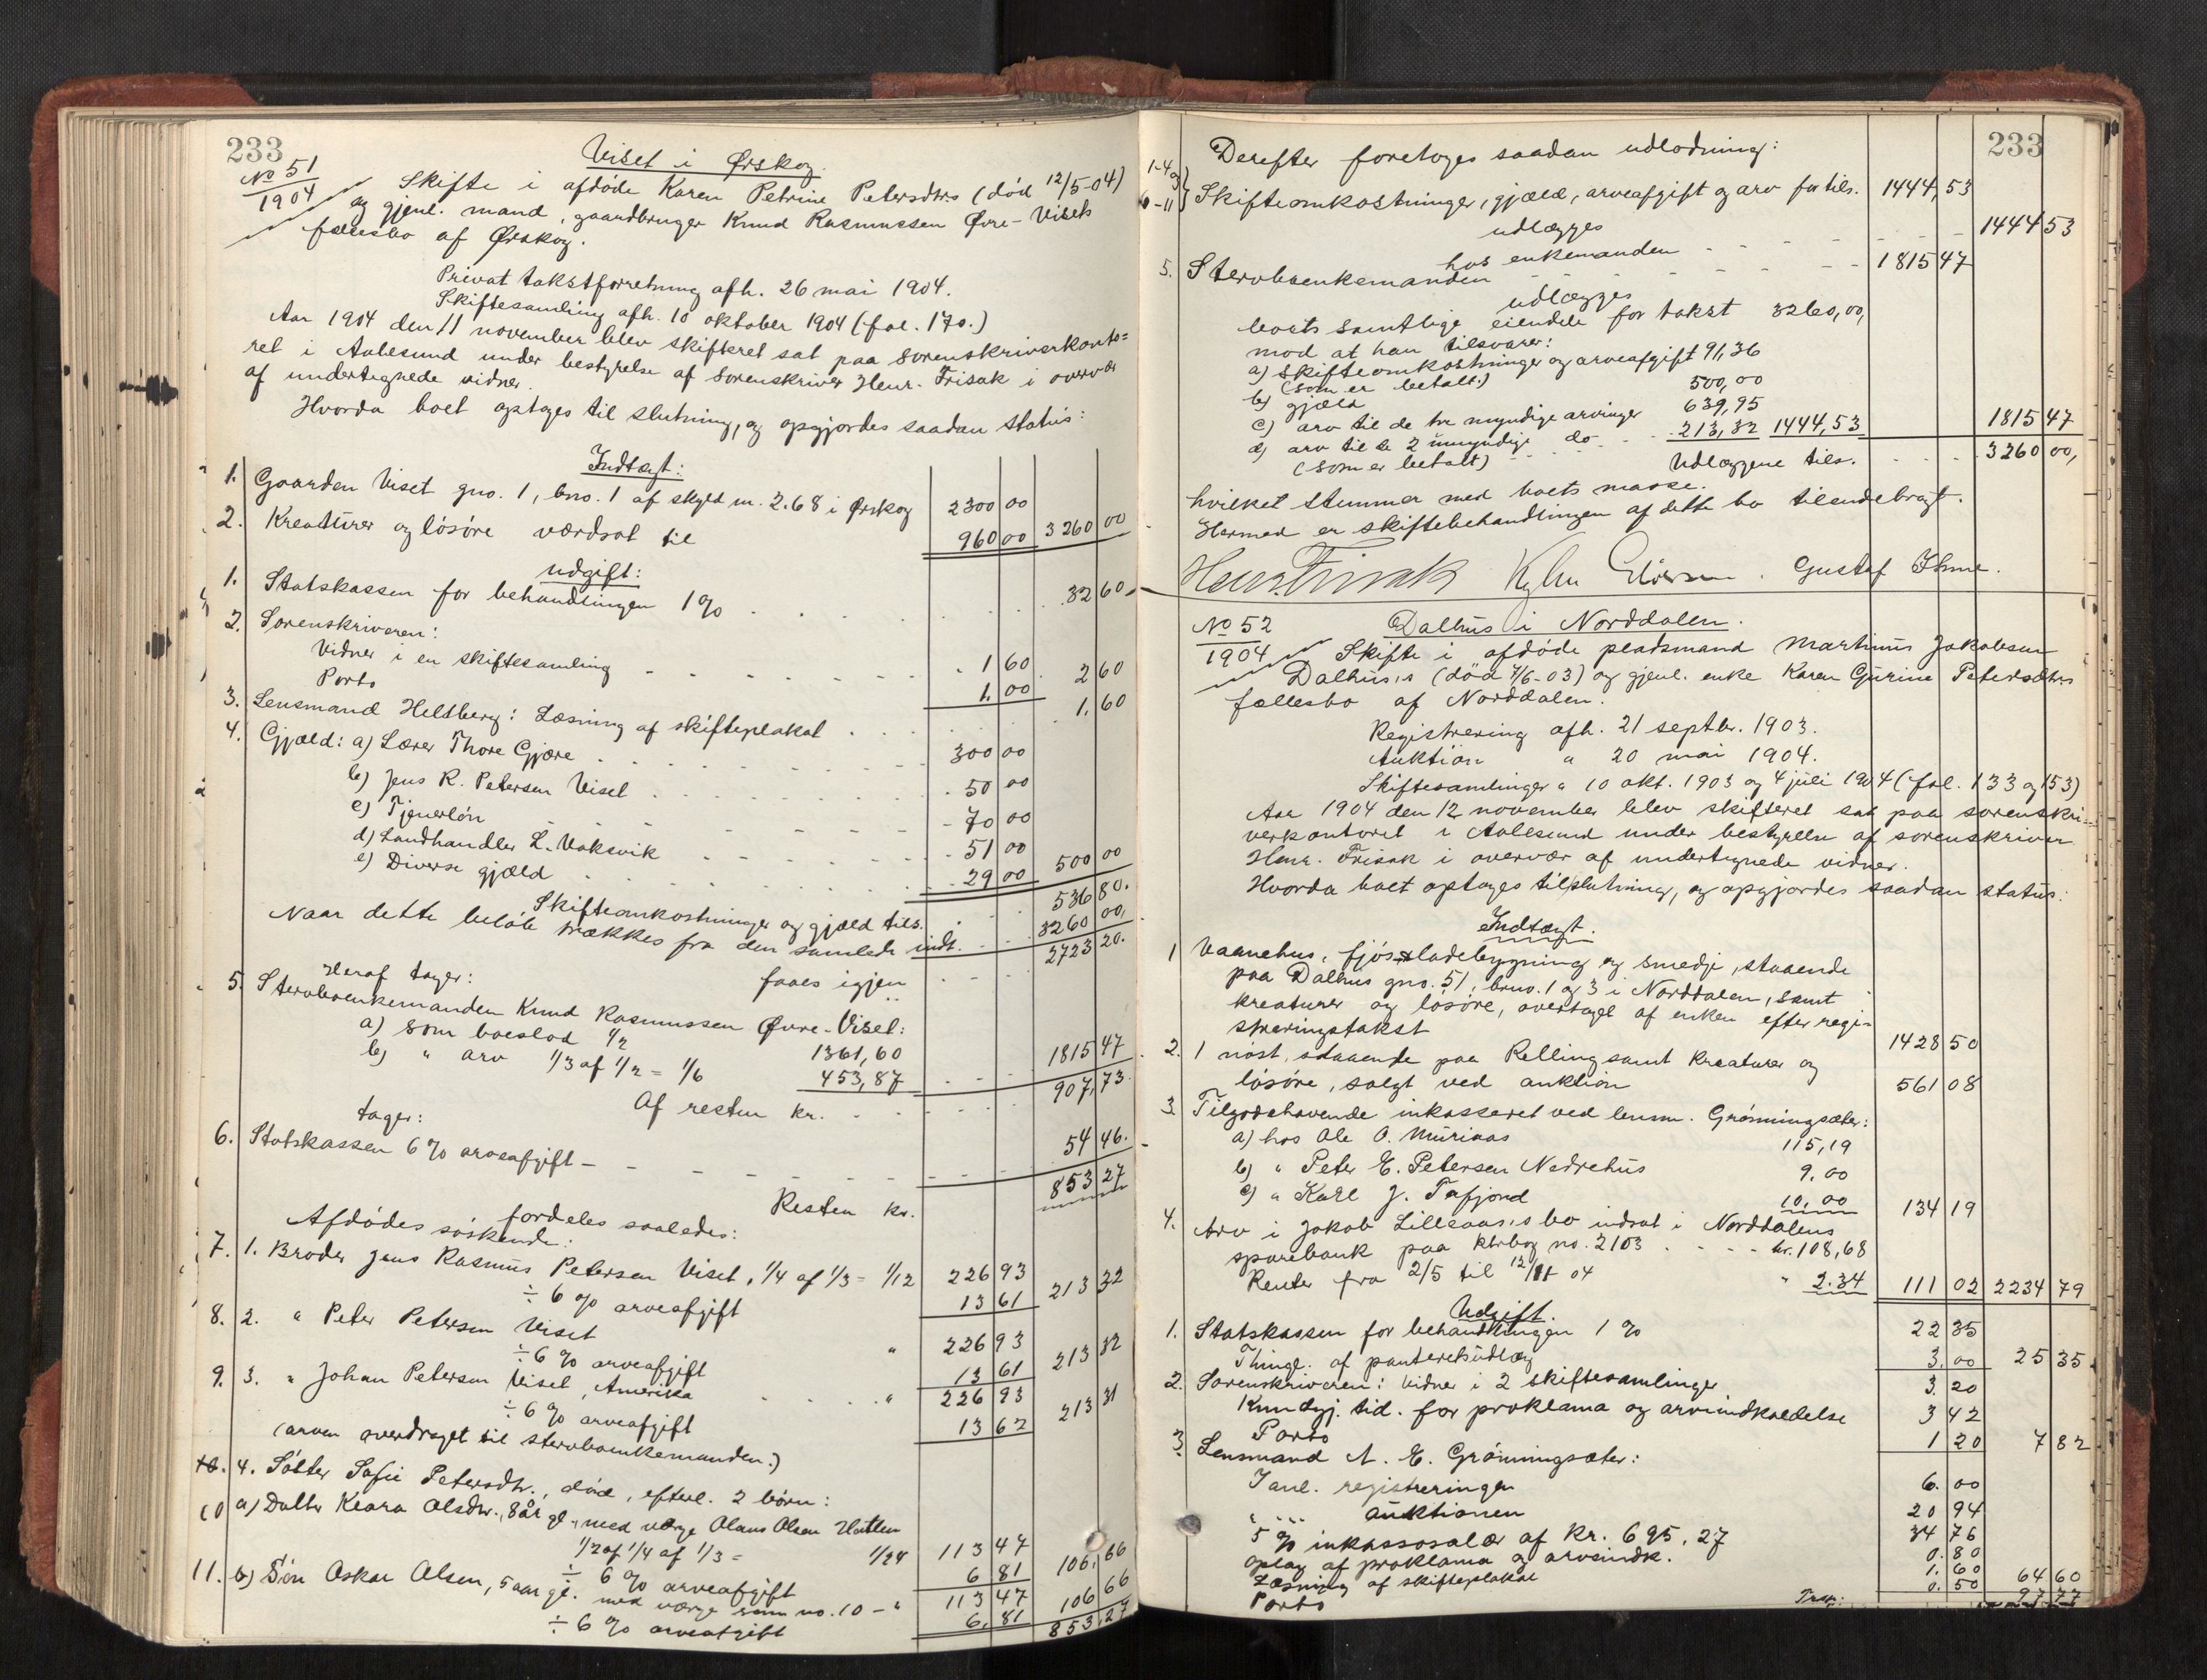 233
No 51
1904
Viset i Ørskog.
Skifte i afdøde Karen Petrine Petersdtrs (død 12/5-04)
og gjenl. mand, gaardbruger Knud Rasmussen Øvre-Visets
fællesbo af Ørskog.
Privat takstforretning afh. 26 mai 1904.
Skiftesamling afh. 10 oktober 1904 (fol. 170.)
Aar 1904 den 11 november blev skifteret sat paa sorenskriverkonto=
ret i Aalesund under bestyrelse af sorenskriver Henr. Frisak i overvær
af undertegnede vidner.
Hvorda boet optoges til slutning, og opgjordes saadan status:
Indtægt:
1. Gaarden Viset gno. 1, bno. 1 af skyld m. 2.68 i Ørskog 2300 00
2. Kreaturer og løsøre værdsat til 960 00 3260 00
Udgift:
1. Statskassen for behandlingen 1% . . . 32 60
2. Sorenskriveren:
Vidner i en skiftesamling - - - 1 60
Porto 1. 00 2 60
3. Lensmand Heltberg: Læsning af skifteplakat . . . 1. 60
4. Gjæld: a) Lærer Thore Gjære 300 00
b) Jens R. Petersen Viset 50 00
c) Tjenerløn 70 00
d) Landhandler L. Vaksvik 51 00
e) Diverse gjæld 29 00 500 00
Skifteomkostninger og gjæld tils. 536 80.
Naar dette beløb trækkes fra den samlede indt. 3260 00,
faaes igjen 2723 20.
Heraf tager:
5. Stervboenkemanden Knud Rasmussen Øvre-Viset:
a) som boeslod 1/2 1361,60
b) " arv 1/3 af 1/2 = 1/6 453,87 1815 47
Af resten kr. 907,73
tager:
6. Statskassen 6% arveafgift - - - 54 46.
Resten kr. 853 27
fordeles saaledes:
Afdødes søskende:
7. 1. Broder Jens Rasmus Petersen Viset, 1/4 af 1/3 = 1/12 226 93
÷ 6% arveafgift 13 61 213 32
8. 2. " Peter Petersen Viset " 226 93
÷ 6% arveafgift 13 61 213 32
9. 3. " Johan Petersen Viset, Amerika " 226 93
÷ 6% arveafgift 13 62 213 31
(arven overdraget til stervboenkemanden.)
10. 4. Søster Sofie Petersdtr., død, efterl. 2 børn:
10 a) Datter Klara Olsdtr., 8 år gl., med værge Olaus Olsen Hatlen
1/2 af 1/4 af 1/3 = 1/24 113 47
÷ 6% arveafgift 6 81 106,66
11. b) Søn Oskar Olsen, 5 aar gl. med værge som no. 10 - " 113 47
÷ 6% arveafgift 6,81 106 66
853,27
233
Derefter foretoges saadan udlodning:
1-4 og
6-11} Skifteomkostninger, gjæld, arveafgift og arv for tils. 1444,53
udlægges
hos enkemanden - - - 1444 53
5. Stervboenkemanden - - - 1815 47
udlægges
boets samtlige eiendele for takst 3260,00,
mod at han tilsvarer:
a) skifteomkostninger og arveafgift 91,36
(som er betalt.)
b) gjæld 500,00
c) arv til de tre myndige arvinger 639,95
d) arv til de 2 umyndige do 213,32 1444,53 1815 47
(som er betalt) Udlæggene tils. 3260 00,
hvilket stemmer med boets masse.
Hermed er skiftebehandlingen af dette bo tilendebragt.
Henr. Frisak Gustaf Ihme.
No 52
1904
Dalhus i Norddalen.
Skifte i afdøde pladsmand Martinus Jakobsen
Dalhus's (død 4/6-03) og gjenl. enke Karen Gurine Petersdtrs
fællesbo af Norddalen.
Registrering afh. 21 septbr. 1903.
Auktion " 20 mai 1904.
Skiftesamlinger " 10 okt. 1903 og 4 juli 1904 (fol. 133 og 153)
Aar 1904 den 12 november blev skifteret sat paa sorenskri=
verkontoret i Aalesund under bestyrelse af sorenskriver
Henr. Frisak i overvær af undertegnede vidner.
Hvorda boet optoges til slutning, og opgjordes saadan status:
Indtægt.
1 Vaanehus, fjøs & ladebygning og smedje, staaende
paa Dalhus gno. 51, brno. 1 og 3 i Norddalen, samt
kreaturer og løsøre, overtaget af enken efter regi=
streringstakst 1428 50
2. 1 nøst, staaende paa Relling samt kreaturer og
løsøre, solgt ved auktion 561 08
3. Tilgodehavende inkasseret ved lensm. Grønningsæter:
a) hos Ole O. Muriaas 115,19
b) " Peter E. Petersen Nedrehus 9.00
c) " Karl J. Tafjord 10.00 134 19
4. Arv i Jakob Lilleaas's bo indsat i Norddalens
sparebank paa ktrbog no. 2103 . . . kr. 108,68
Renter fra 2/5 til 12/11 04 " 2.34 111 02 2234 79
Udgift.
1. Statskassen for behandlingen 1% 22 35
Thingl. af panteretsudlæg 3.00 25 35
2. Sorenskriveren: Vidner i 2 skiftesamlinger 3.20
Kundgj. tid. for proklama og arveindkaldelse 3 42
Porto 1 20 7 82
3. Lensmand A. E. Grønningsæter:
I anl. registreringen 6.00
" " auktionen 20 94
5% inkassosalær af kr. 695,27 34 76
Oplæg af proklama og arveindk. 0.80
Læsning af skifteplakat 1.60
Porto 0.50 64 60
Trsp: 97 77